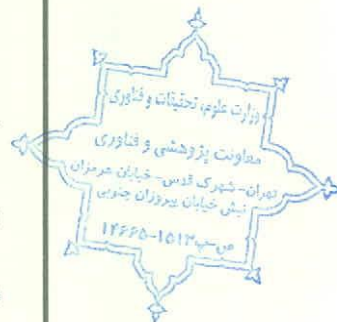 وزارت علوم، تحقیقات و فناوری
معاونت پژوهشی و فناوری
تهران-شهرک قدس-خیابان هرمزان
نبش خیابان پیروزان جنوبی
ص-پ ۱۵۱۳-۱۴۶۶۵